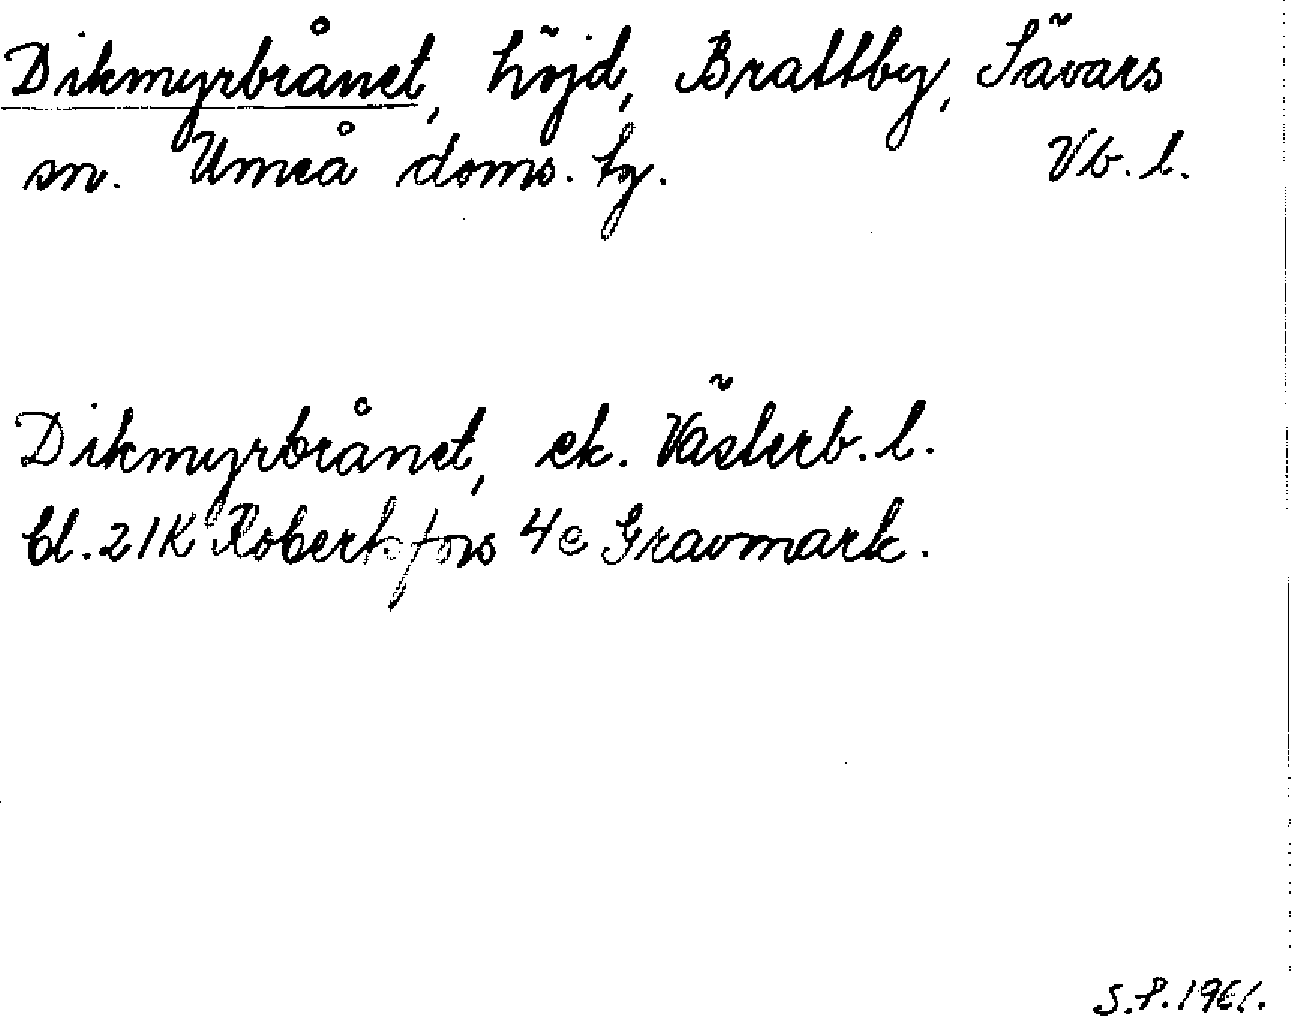 Dikmyrbrånet, höjd, Brattby, Sävars
sn. Umeå doms. hg. Vb. l.
Dikmyrbrånet, ek. Västerb. l.
bl. 21K Robertsfors 4c Gravmark.
S.P. 1961.